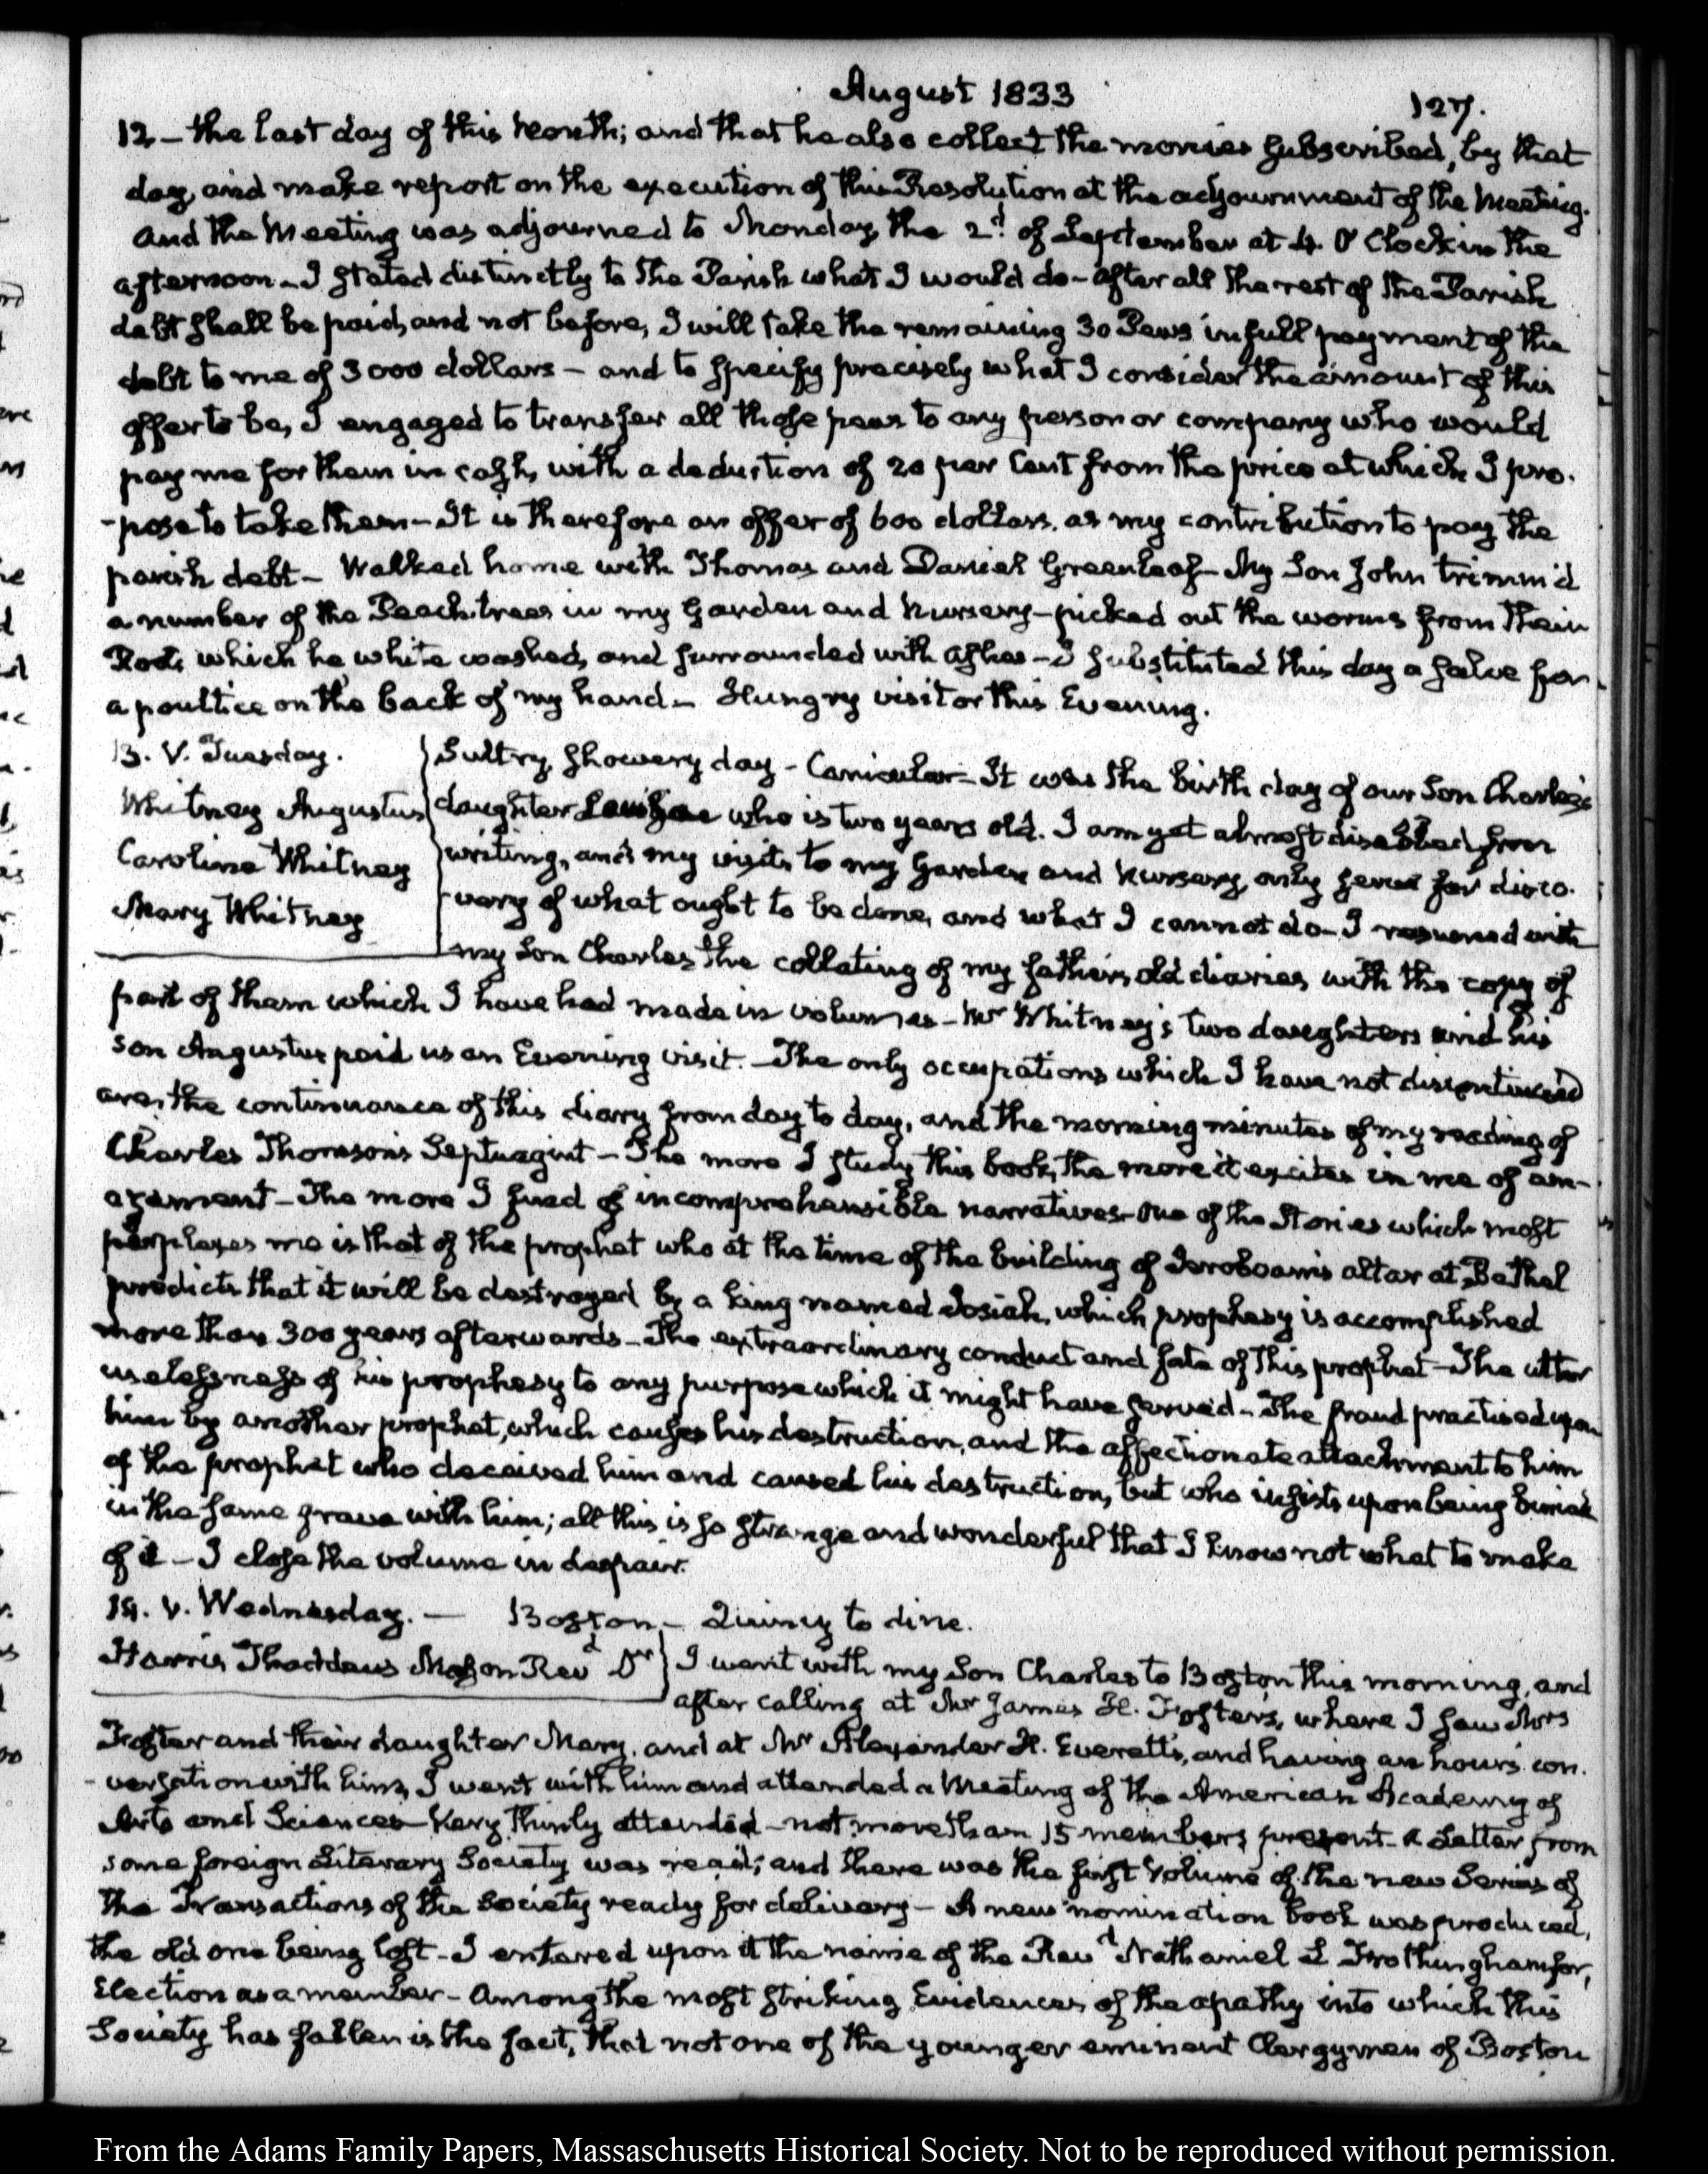 August 1833
127.
12 – the last day of this Month; and that he also collect the monies subscribed, by that
day, and make report on the execution of this Resolution at the adjournment of the Meeting.
And the Meeting was adjourned to Monday the 2d of September at 4. O'Clock in the
afternoon – I stated distinctly to the Parish what I would do – after all the rest of the Parish
debt shall be paid, and not before, I will take the remaining 30 Pews in full payment of the
debt to me of 3000 dollars – and to specify precisely what I consider the amount of this
offer to be, I engaged to transfer all those pews to any person or company who would
pay me for them in cash, with a deduction of 20 per Cent from the price at which I pro-
-pose to take them – It is therefore an offer of 600 dollars, as my contribution to pay the
parish debt – Walked home with Thomas and Daniel Greenleaf – My Son John trimm'd
a number of the Peach trees in my Garden and Nursery – picked out the worms from their
Roots which he white washed, and surrounded with ashes – I substituted this day a salve for
a poultice on the back of my hand – Hungry visitor this Evening.
13. V. Tuesday.
Whitney Augustus
Caroline Whitney
Mary Whitney
Sultry, showery day – Canicular – It was the birth day of our Son Charles's
daughter Louisa who is two years old. I am yet almost disabled from
writing, and my visits to my Garden and Nursery, only serve for disco-
-very of what ought to be done, and what I cannot do – I resumed with
my Son Charles the collating of my father's old diaries with the copy of
part of them which I have had made in volumes – Mr Whitney's two daughters and his
son Augustus paid us an Evening visit. – The only occupations which I have not discontinued
are, the continuance of this diary from day to day, and the morning minutes of my reading of
Charles Thomson's Septuagint – The more I study this book, the more it excites in me of am-
azement – The more I find of incomprehensible narratives – One of the Stories which most
perplexes me is that of the prophet who at the time of the building of Jeroboam's altar at Bethel
predicts that it will be destroyed by a king named Josiah, which prophesy is accomplished
more than 300 years afterwards – The extraordinary conduct and fate of this prophet – The utter
uselessness of his prophesy to any purpose which it might have served – The fraud practised upon
him by another prophet, which causes his destruction, and the affectionate attachment to him
of the prophet who deceived him and caused his destruction, but who insists upon being buried
in the same grave with him; all this is so strange and wonderful that I know not what to make
of it – I close the volume in despair.
14. V. Wednesday. – Boston – Quincy to dine.
Harris Thaddeus Mason Revd Dr
I went with my Son Charles to Boston this morning, and
after calling at Mr James H. Foster's, where I saw Mrs
Foster and their daughter Mary, and at Mr Alexander H. Everett's, and having an hours con-
-versation with him, I went with him and attended a Meeting of the American Academy of
Arts and Sciences – Very thinly attended – not more than 15 members present – a Letter from
some foreign Literary Society was read; and there was the first volume of the new Series of
the Transactions of the Society ready for delivery – A new nomination book was produced,
the old one being lost – I entered upon it the name of the Revd Nathaniel L Frothingham for,
Election as a member – Among the most striking Evidences of the apathy into which this
Society has fallen is the fact, that not one of the younger eminent Clergymen of Boston
From the Adams Family Papers, Massaschusetts Historical Society. Not to be reproduced without permission.